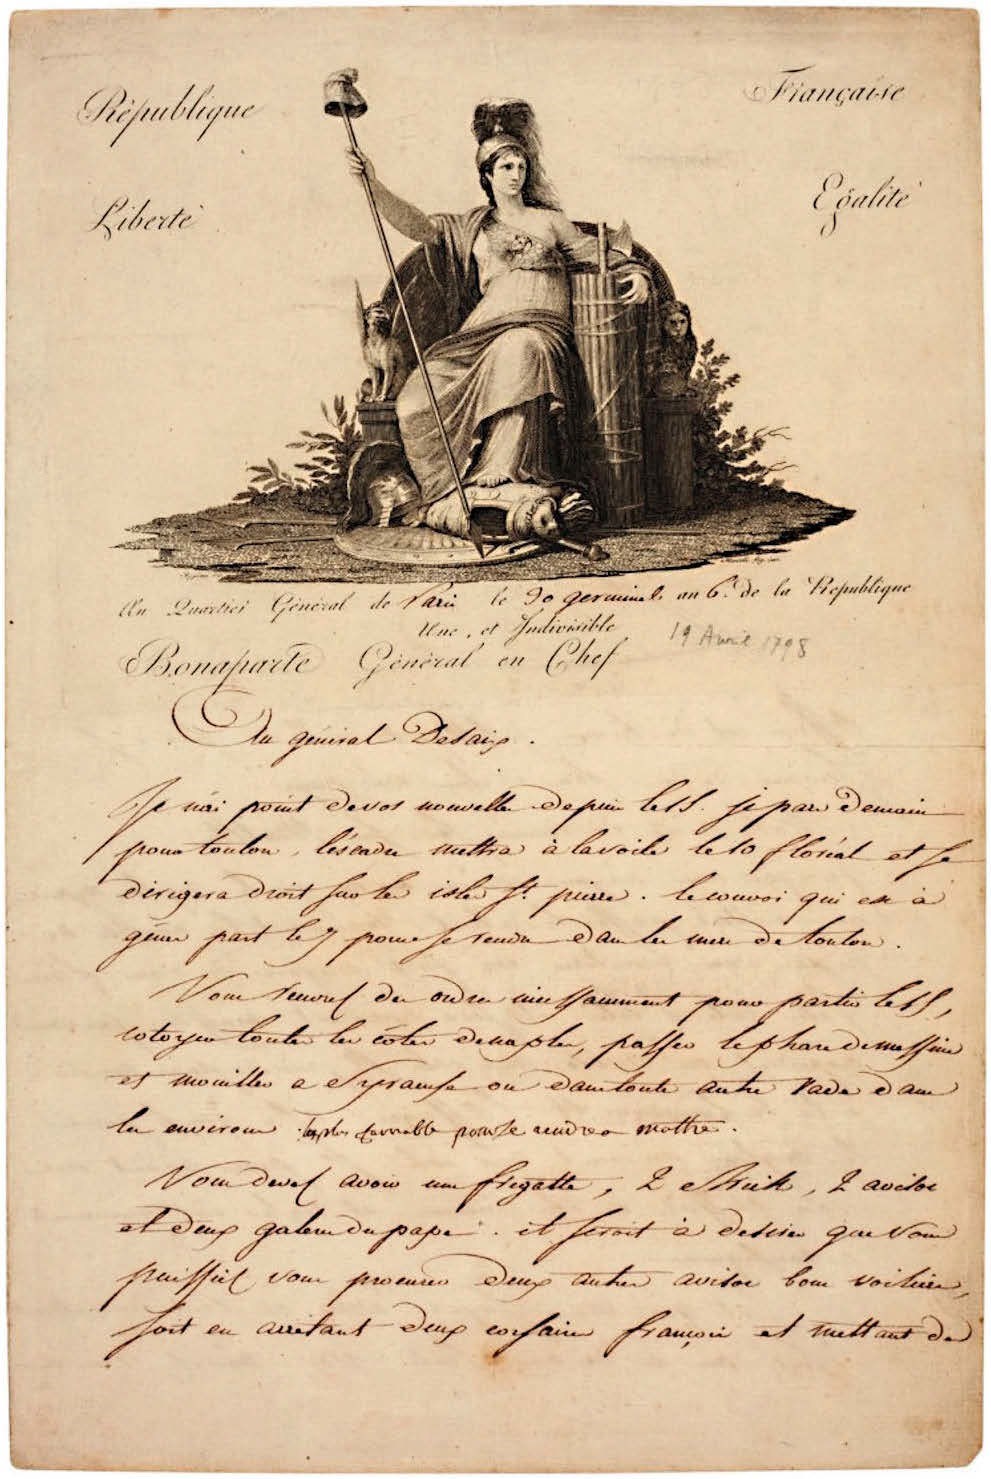 République Française
Liberté Egalité
Au Quartier Général de Paris le 30 germinal an 6e. de la République
Une, et Indivisible
19 Avril 1798
Bonaparte Général en Chef
Au général Desaix.
Je n'ai point de vos nouvelles depuis le 15. je pars demain
pour toulon, l'éscadre mettra à la voile le 10 floréal et se
dirigera droit sur les isles St. pierre. le convoi qui est à
gênes part le 7 pour se rendre dans les mers de toulon.
Vous recevrez des ordres incessamment pour partir le 15,
cotoyer toutes les côtes de naples, passer le phare de messine
et mouiller a Syracuse ou dans toute autre rade dans
les environs le plus favorable pour se rendre a malthe.
Vous devez avoir une frégatte, 2 Bricks, 2 avisos
et deux galeres du pape. il seroit à desirer que vous
puissiez vous procurer deux autres avisos bons voiliers,
soit en arrêtant deux corsaires françois et mettant des